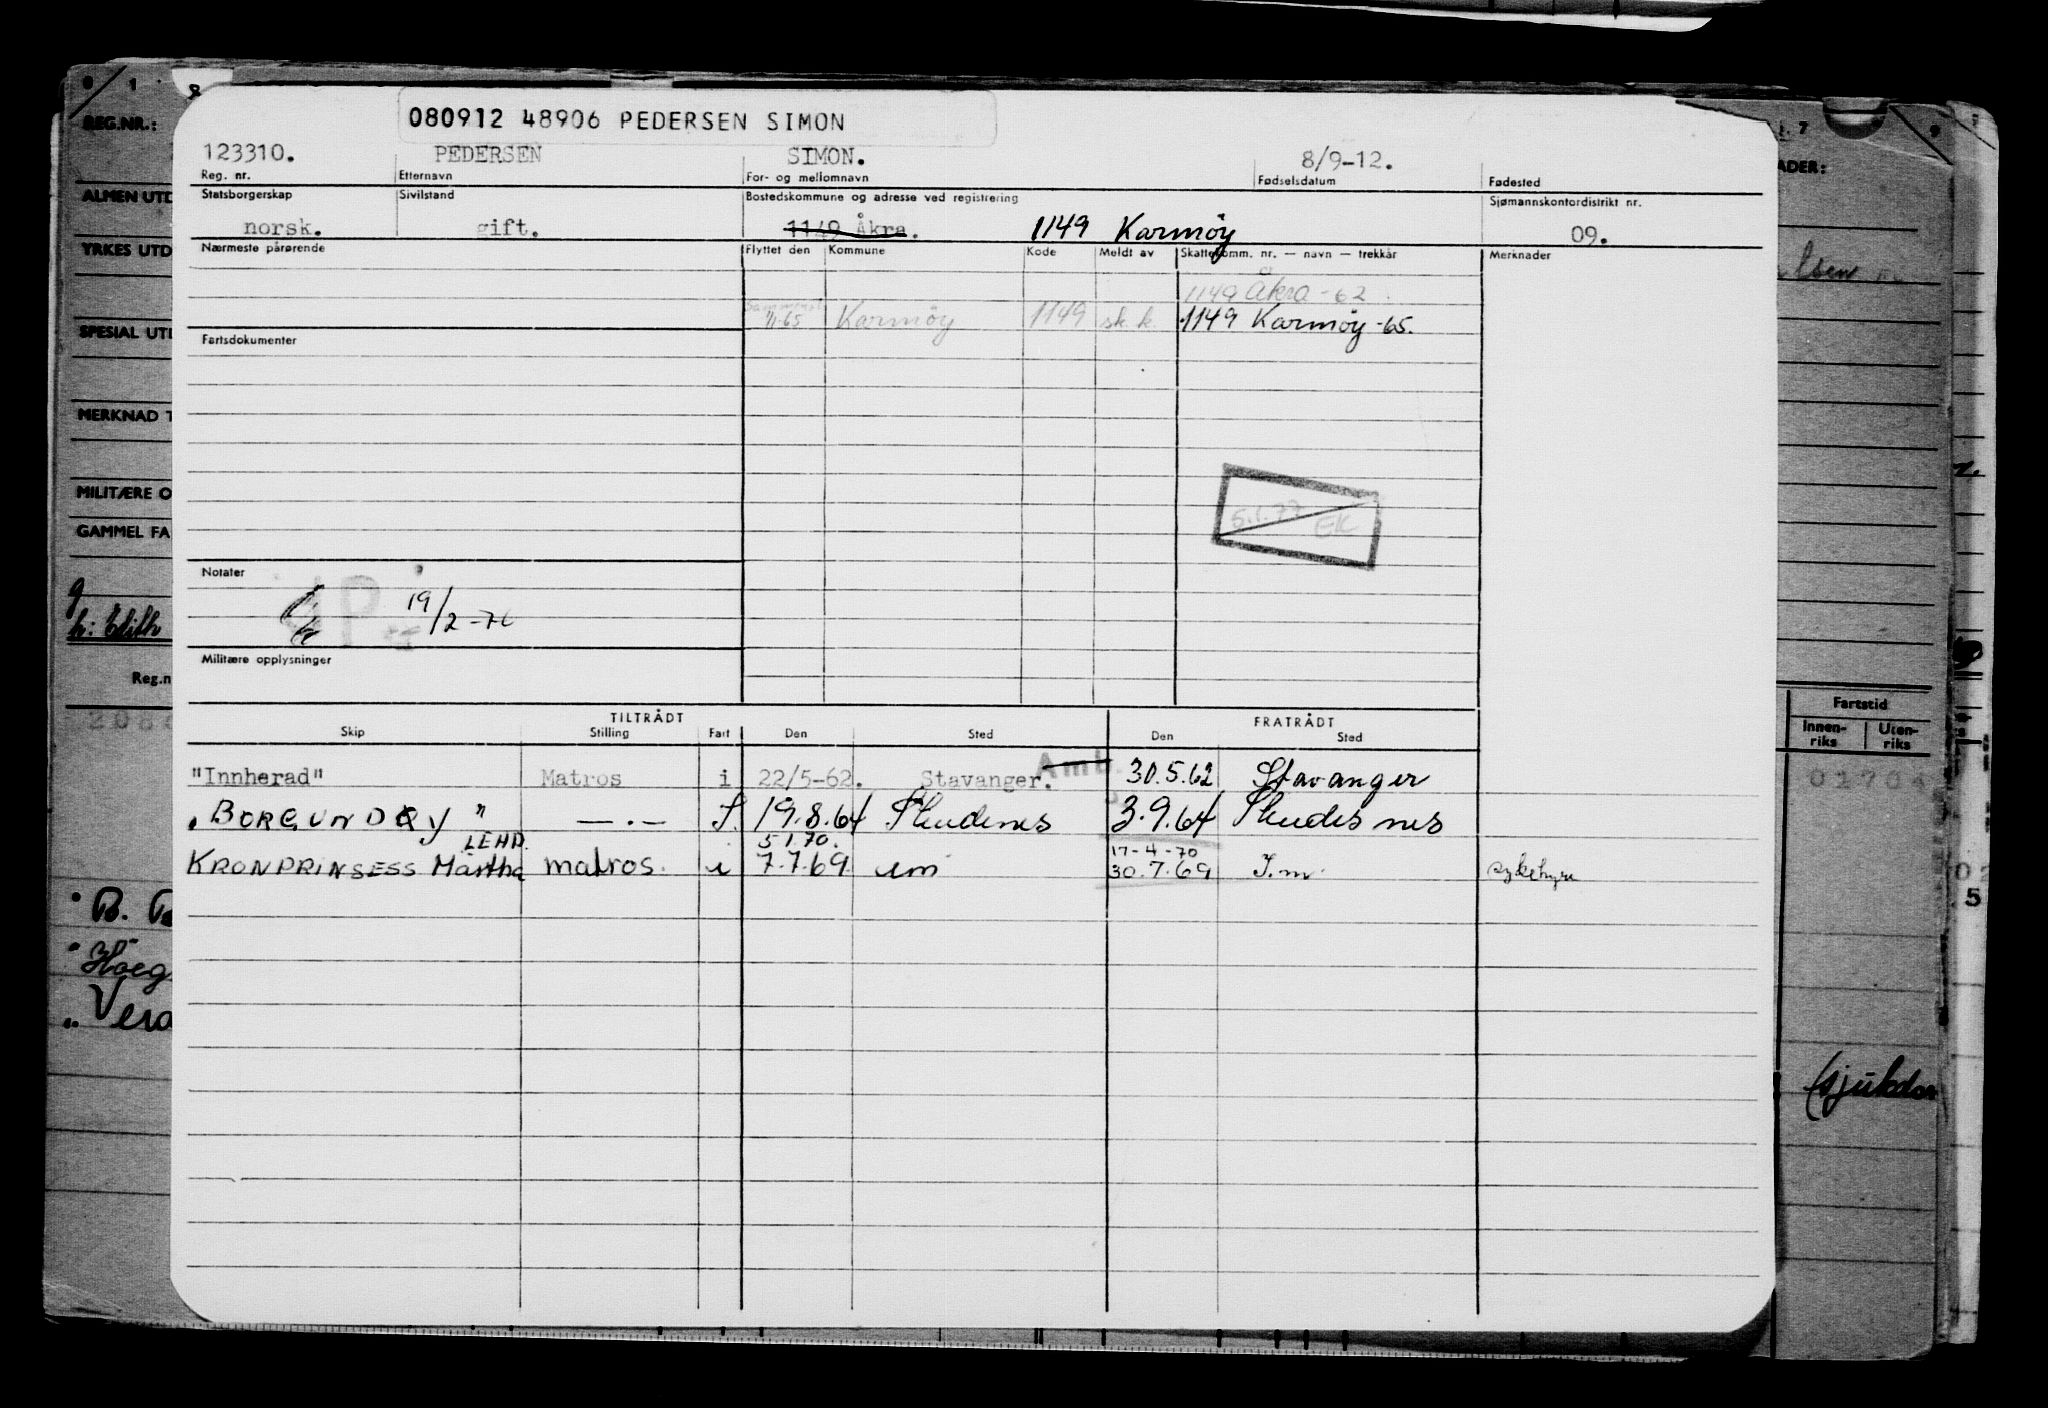 080912 48906 PEDERSEN SIMON
123310. PEDERSEN SIMON. 8/9-12.
Reg. nr. Etternavn For- og mellomnavn Fødselsdatum Fødested
Statsborgerskap Sivilstand Bostedskommune og adresse ved registrering Sjømannskontordistrikt nr.
norsk. gift. 1149 Åkra. 1149 Karmøy 09.
Nærmeste pårørende Flyttet den Kommune Kode Meldt av Skattekomm. nr. — navn — trekkår Merknader
1149 Åkra -62
1/1-65 Karmøy 1149 sk.k. 1149 Karmøy -65.
Fartsdokumenter
5.1.77 EK
Notater
P 19/2-76
Militære opplysninger
TILTRÅDT FRATRÅDT
Skip Stilling Fart Den Sted Den Sted
"Innherad" Matros i 22/5-62. Stavanger. Amb. 30.5.62 Stavanger
"BORGUNDØY" —.— S. 19.8.64 Skudenes 3.9.64 Skudesnes
LEHD. 5.1.70. 17-4-70
KRONPRINSESS Märtha matros. i 7.7.69 um 30.7.69 I.m. sykehyre
REG.NR.:
ALMEN UTD
YRKES UTD
SPESIAL UTD
MERKNAD T
MILITÆRE O
GAMMEL FA
h: Edith
Reg.n
Fartstid
Innen-riks Uten-riks
01704
B. B
Höeg
Vera
5
(sjukdom